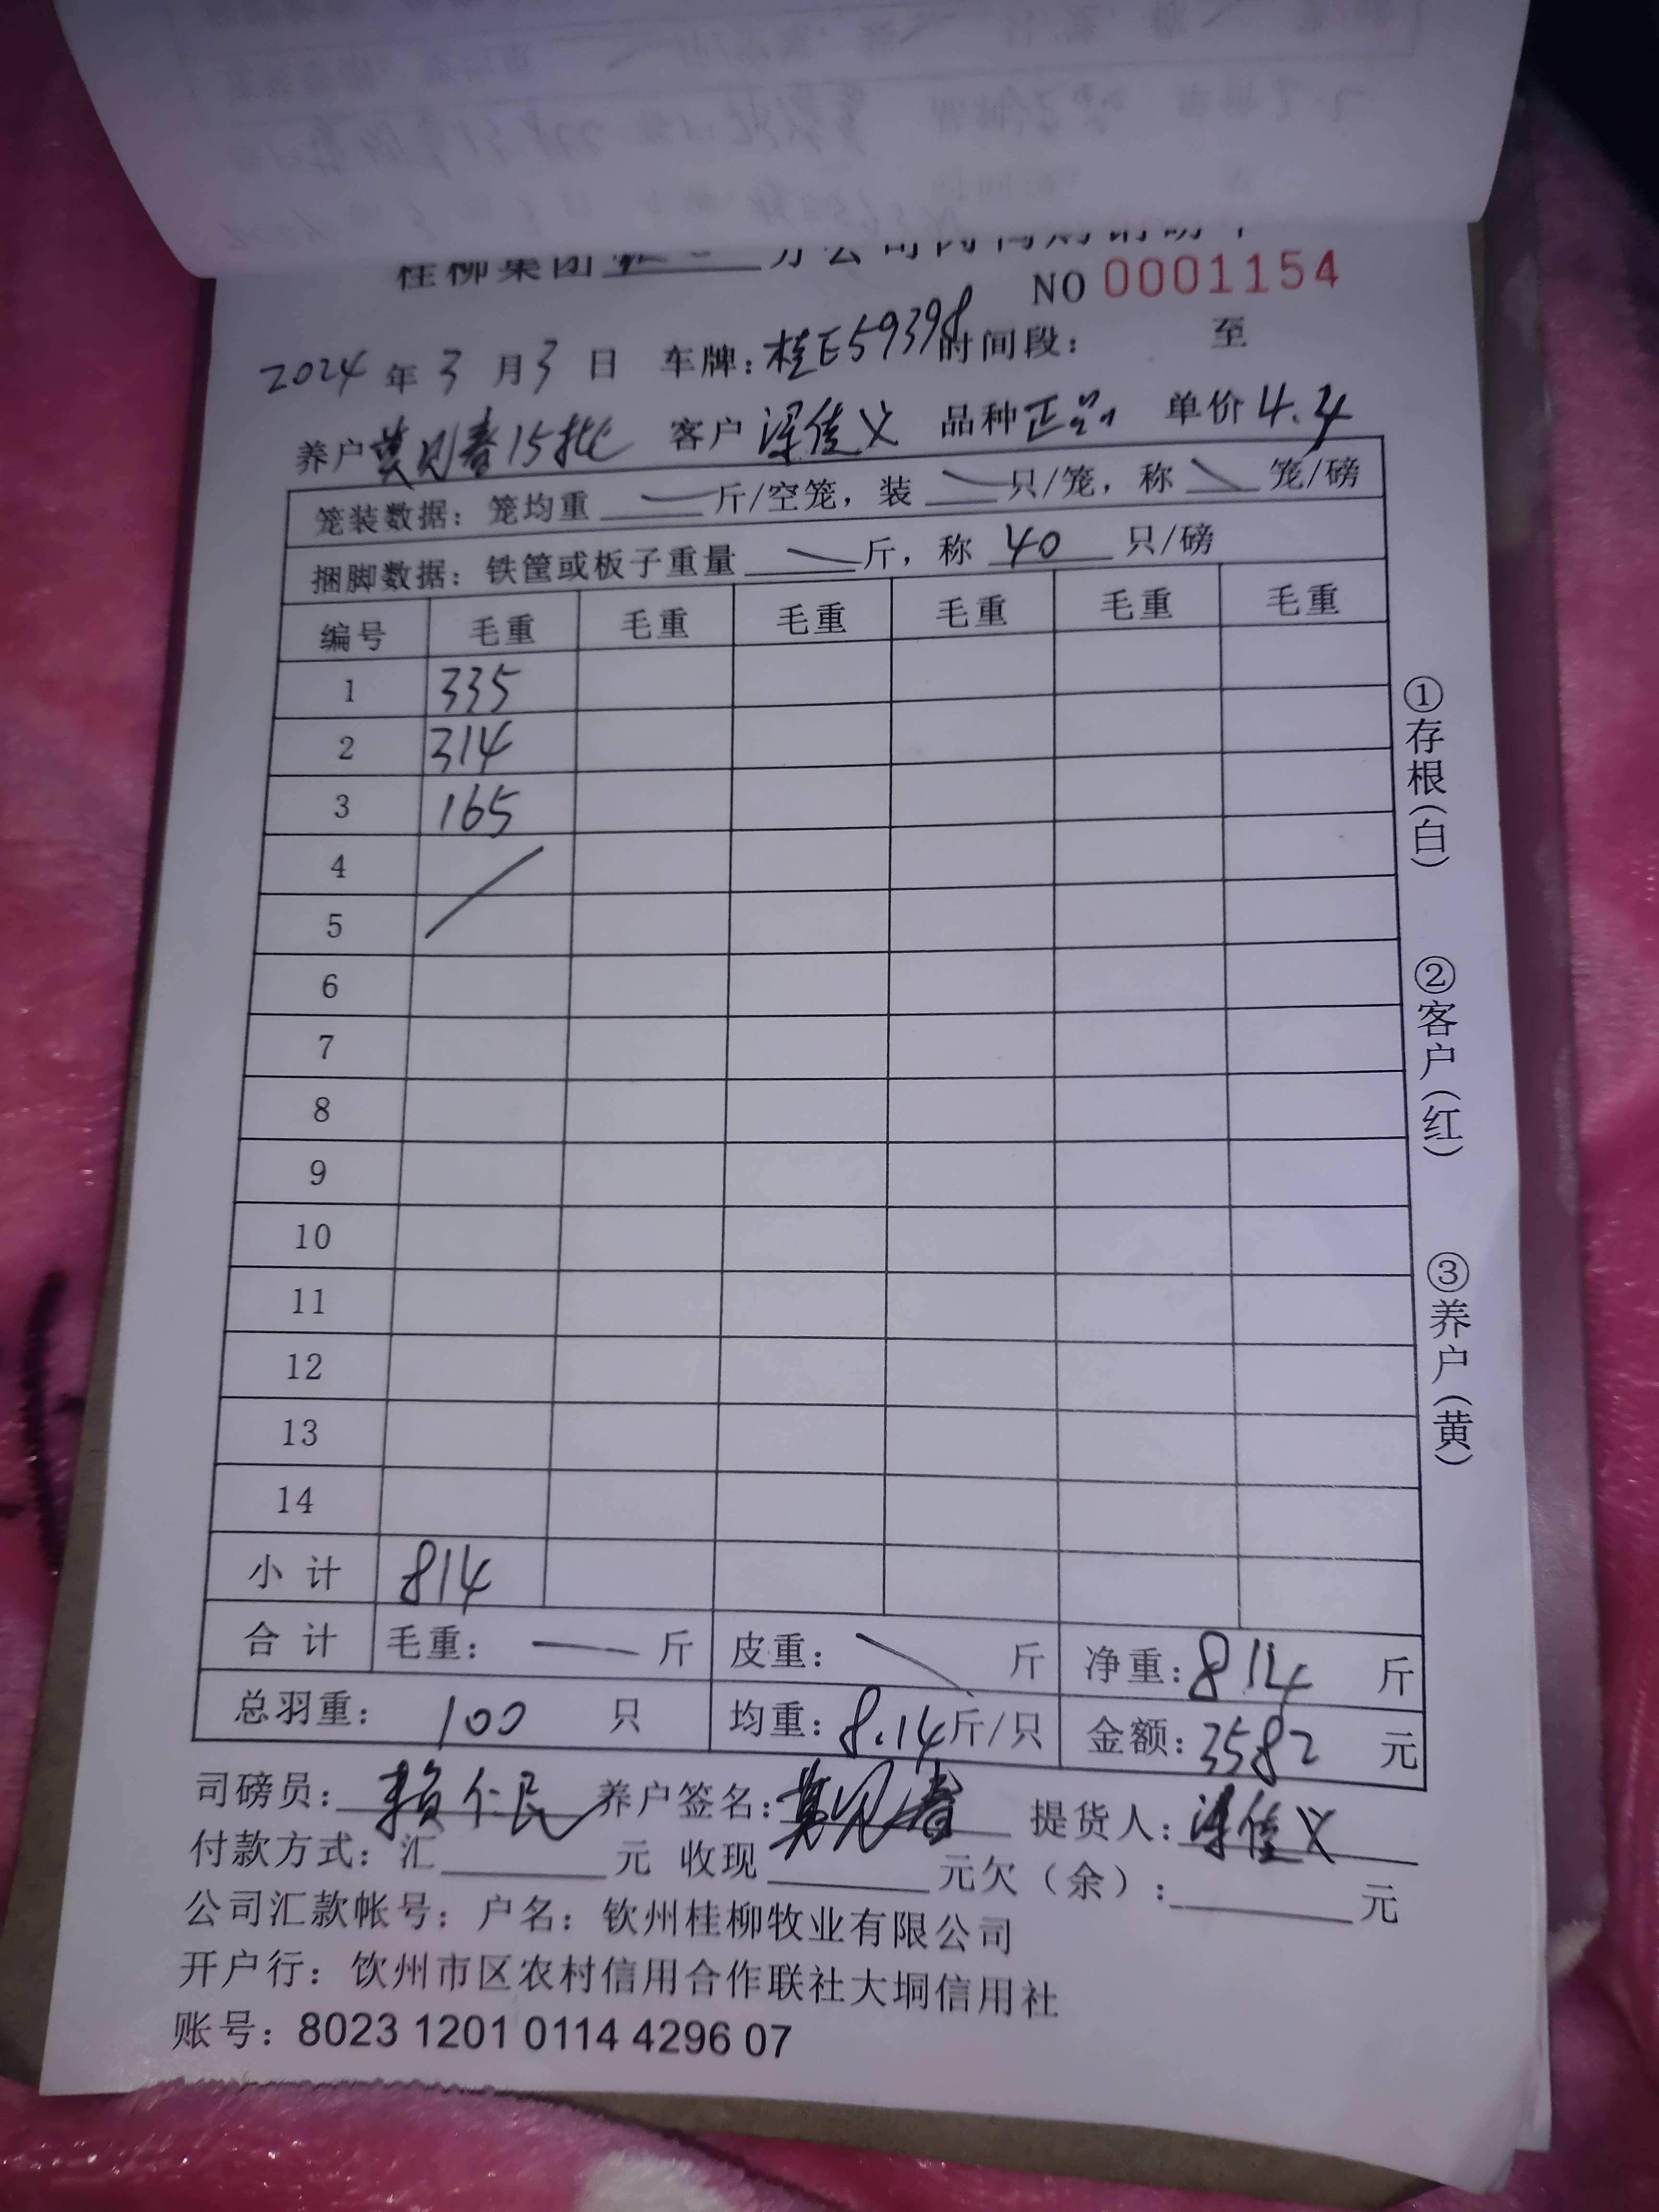 桂柳集团 分公司肉鸭购销磅单
NO 0001154
2024 年 3 月 3 日 车牌：桂E59398 时间段： 至
养户 莫见春15批 客户 梁佳义 品种 正品 单价 4.4
笼装数据：笼均重 斤/空笼，装 只/笼，称 笼/磅
捆脚数据：铁筐或板子重量 斤，称 40 只/磅
编号 毛重 毛重 毛重 毛重 毛重 毛重
1 335
2 314
3 165
4
5
6
7
8
9
10
11
12
13
14
小计 814
合计 毛重： 斤 皮重： 斤 净重：814 斤
总羽重： 100 只 均重：8.14斤/只 金额：3582 元
司磅员：赖仁民 养户签名：莫见春 提货人：梁佳义
付款方式：汇 元 收现 元欠（余）： 元
公司汇款帐号：户名：钦州桂柳牧业有限公司
开户行：饮州市区农村信用合作联社大垌信用社
账号：8023 1201 0114 4296 07
①存根（白）
②客户（红）
③养户（黄）